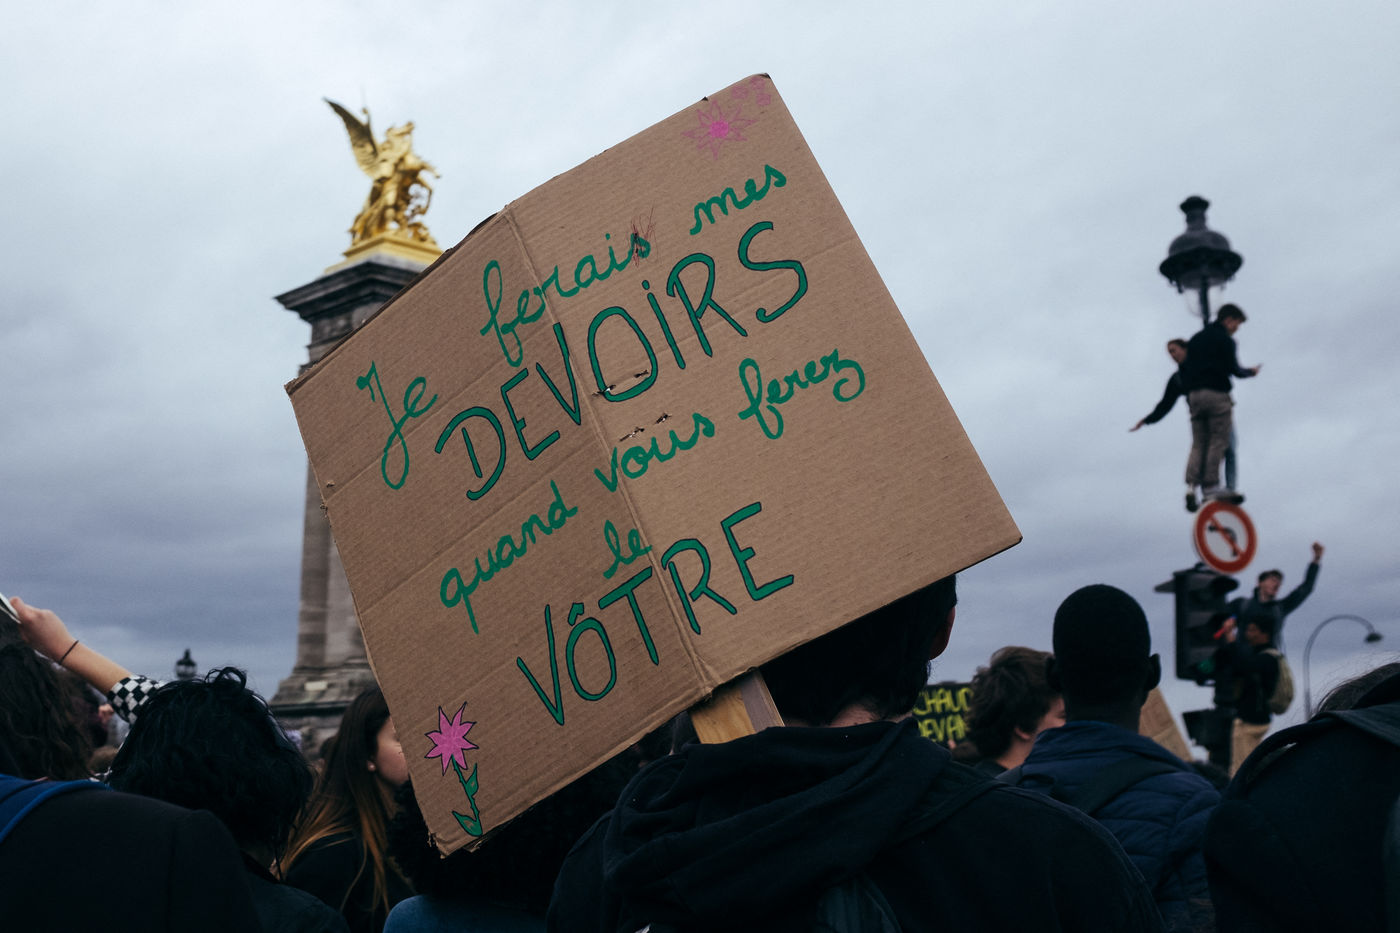 Je ferais mes
DEVOIRS
quand vous ferez
le
VÔTRE
CHAUD
DEVAN